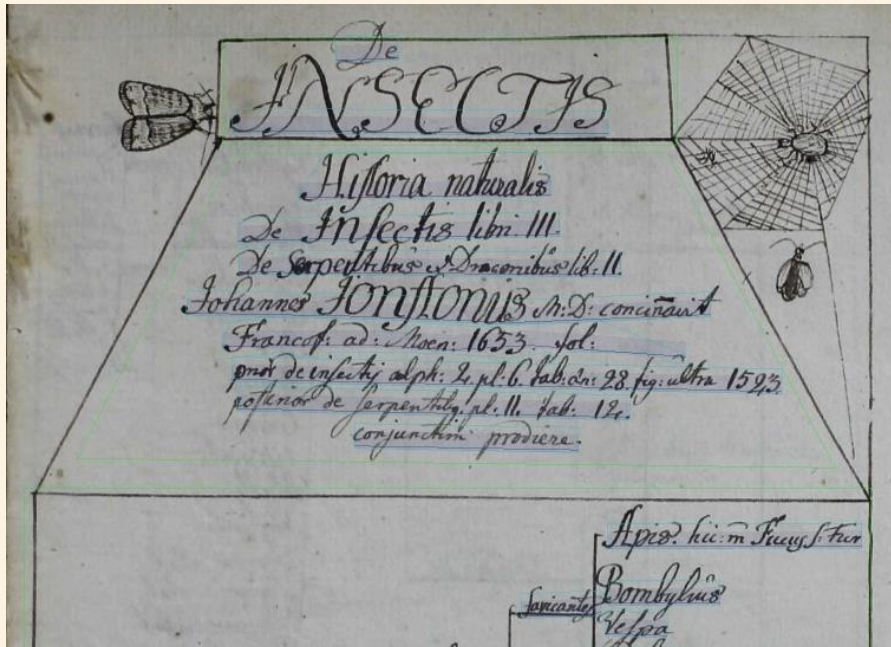 De
INSECTIS
Historia naturalis
De Insectis libri III.
De Serpentibus & Draconibus lib: II.
Johannes Jonstonus M: D: concin̄avit
Francof: ad: Moen: 1653. fol:
prior de insectis alph: 2. pl: 6. tab: æn: 28. fig: ultra 1523.
posterior de Serpentibq. pl. 11. tab: 12.
conjunctim prodiere.
Apis. huc: Fucus s. Fur
Bombylius
favicantes
Vespa